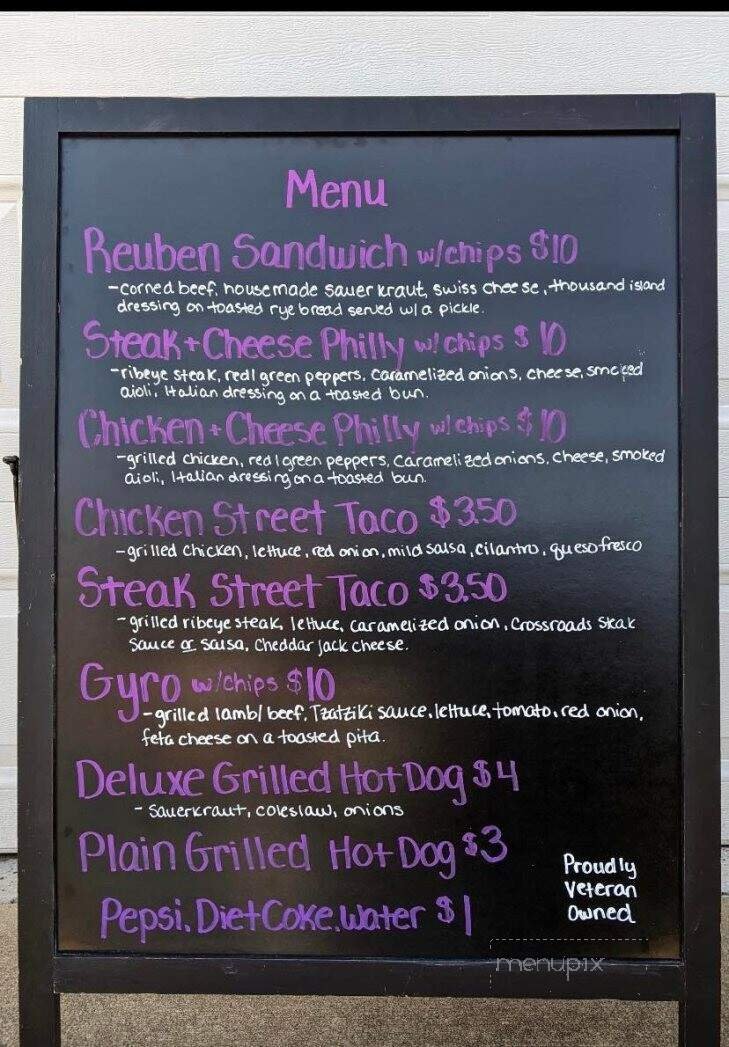 Menu
Reuben Sandwich w/chips $10
-corned beef, housemade sauerkraut, swiss cheese, thousand island
dressing on toasted rye bread served w/ a pickle.
Steak + Cheese Philly w/ chips $10
-ribeye steak, red/green peppers, caramelized onions, cheese, smoked
aioli, Italian dressing on a toasted bun.
Chicken + Cheese Philly w/ chips $10
-grilled chicken, red/green peppers, caramelized onions, cheese, smoked
aioli, Italian dressing on a toasted bun.
Chicken Street Taco $3.50
-grilled chicken, lettuce, red onion, mild salsa, cilantro, queso fresco
Steak Street Taco $3.50
-grilled ribeye steak, lettuce, caramelized onion, Crossroads Steak
Sauce or salsa, Cheddar jack cheese.
Gyro w/chips $10
-grilled lamb/beef, Tzatziki sauce, lettuce, tomato, red onion,
feta cheese on a toasted pita.
Deluxe Grilled Hot Dog $4
- Sauerkraut, coleslaw, onions
Plain Grilled Hot Dog $3
Pepsi, Diet Coke, Water $1
Proudly
Veteran
Owned
menupix